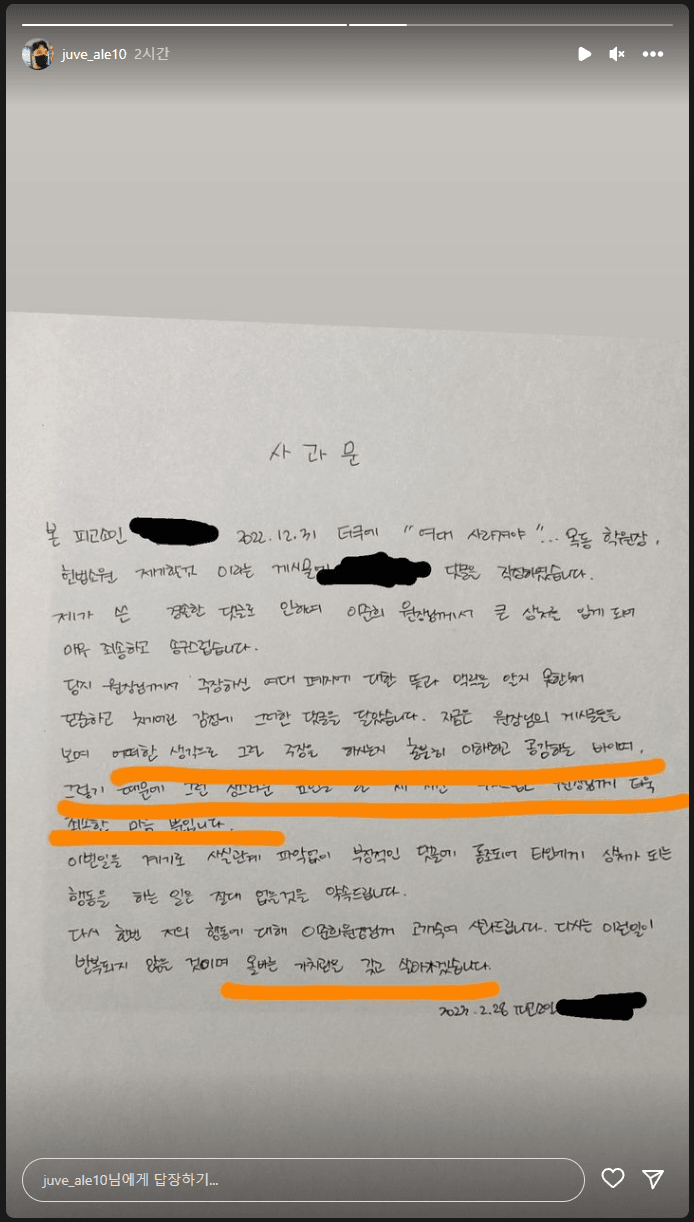 juve_ale10 2시간
사과문
본 피고소인 2022.12.31 더쿠에 "여대 사라져야"... 옥동 학원장,
헌법소원 제기할것 이라는 게시물에 댓글을 작성하였습니다.
제가 쓴 경솔한 댓글로 인하여 이준희 원장님께서 큰 상처를 입게 되어
매우 죄송하고 송구스럽습니다.
당시 원장님께서 주장하신 여대 폐지에 대한 뜻과 맥락은 알지 못한채
단순하고 감정에 그러한 댓글을 달았습니다. 지금은 원장님의 게시물들을
보며 어떠한 생각으로 그런 주장을 하시는지 충분히 이해하고 공감하는 바이며,
그렇기 때문에 그런 원장님께 더욱
죄송한 마음 뿐입니다.
이번일을 계기로 사실관계 파악없이 부정적인 댓글에 동조되어 타인에게 상처가 되는
행동을 하는 일은 절대 없을것을 약속드립니다.
다시 한번 저의 행동에 대해 이준희원장님께 고개숙여 사과드립니다. 다시는 이런일이
반복되지 않을 것이며 올바른 가치관을 갖고 살아가겠습니다.
2023.2.28 피고소인
juve_ale10님에게 답장하기...